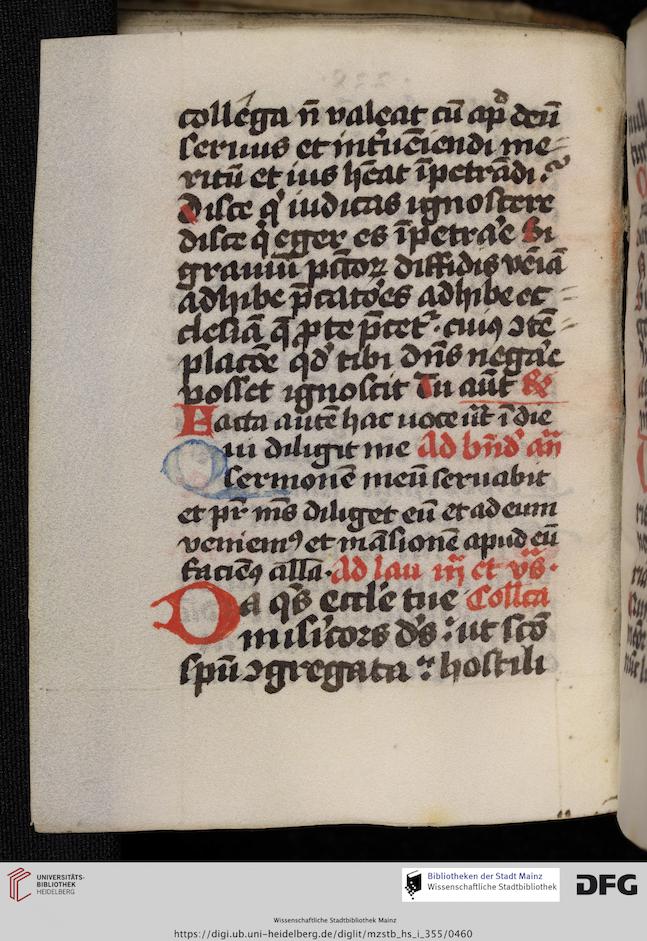 collega n̄ valeat cū ap̄ᵈ deū
seruus et int̄ueīendi me=
ritū et ius hēat īpetrādi
Disce q̓ iudicas ignoscere
disce q̓ eger es īpetrar̄e Si
grauiū pctōꝝ diffidis vēiā
adhibe p̄catōes adhibe ec=
clesiā q̄ ꝓ te p̄cet᷑ · cuiꝰ ꝯtē=
placōe qd̓ tibi dn̄s negar̄e
posset ignoscit Tu aūt
Facta autē hac uoce
Qui diligit me Ad bn̄d᷑ an̄
sermonē meū seruabit
et pr̄ ms̄ diliget eū et ad eum
veniemꝰ et māsionē apud eū
faciēꝰ alla · Ad lau et vs̄ ·
Da qs̄ eccl̄e tue Collca
misicors ds̄ : ut scō
spū ꝯgregata : hostili
UNIVERSITÄTS-
BIBLIOTHEK
HEIDELBERG
Bibliotheken der Stadt Mainz
Wissenschaftliche Stadtbibliothek
DFG
Wissenschaftliche Stadtbibliothek Mainz
https://digi.ub.uni-heidelberg.de/diglit/mzstb_hs_i_355/0460